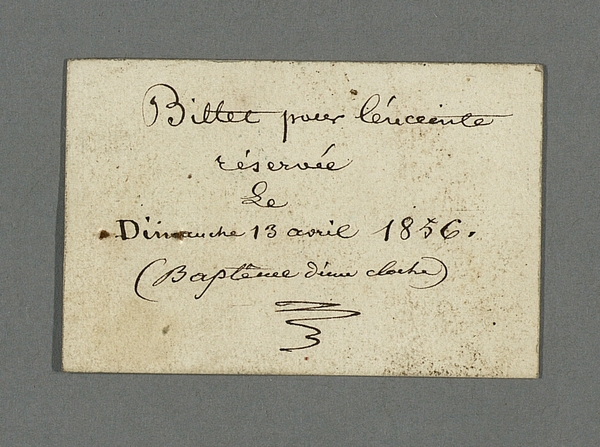 Billet pour l'enceinte
réservée
Le
Dimanche 13 avril 1856.
(Baptême d'une cloche)